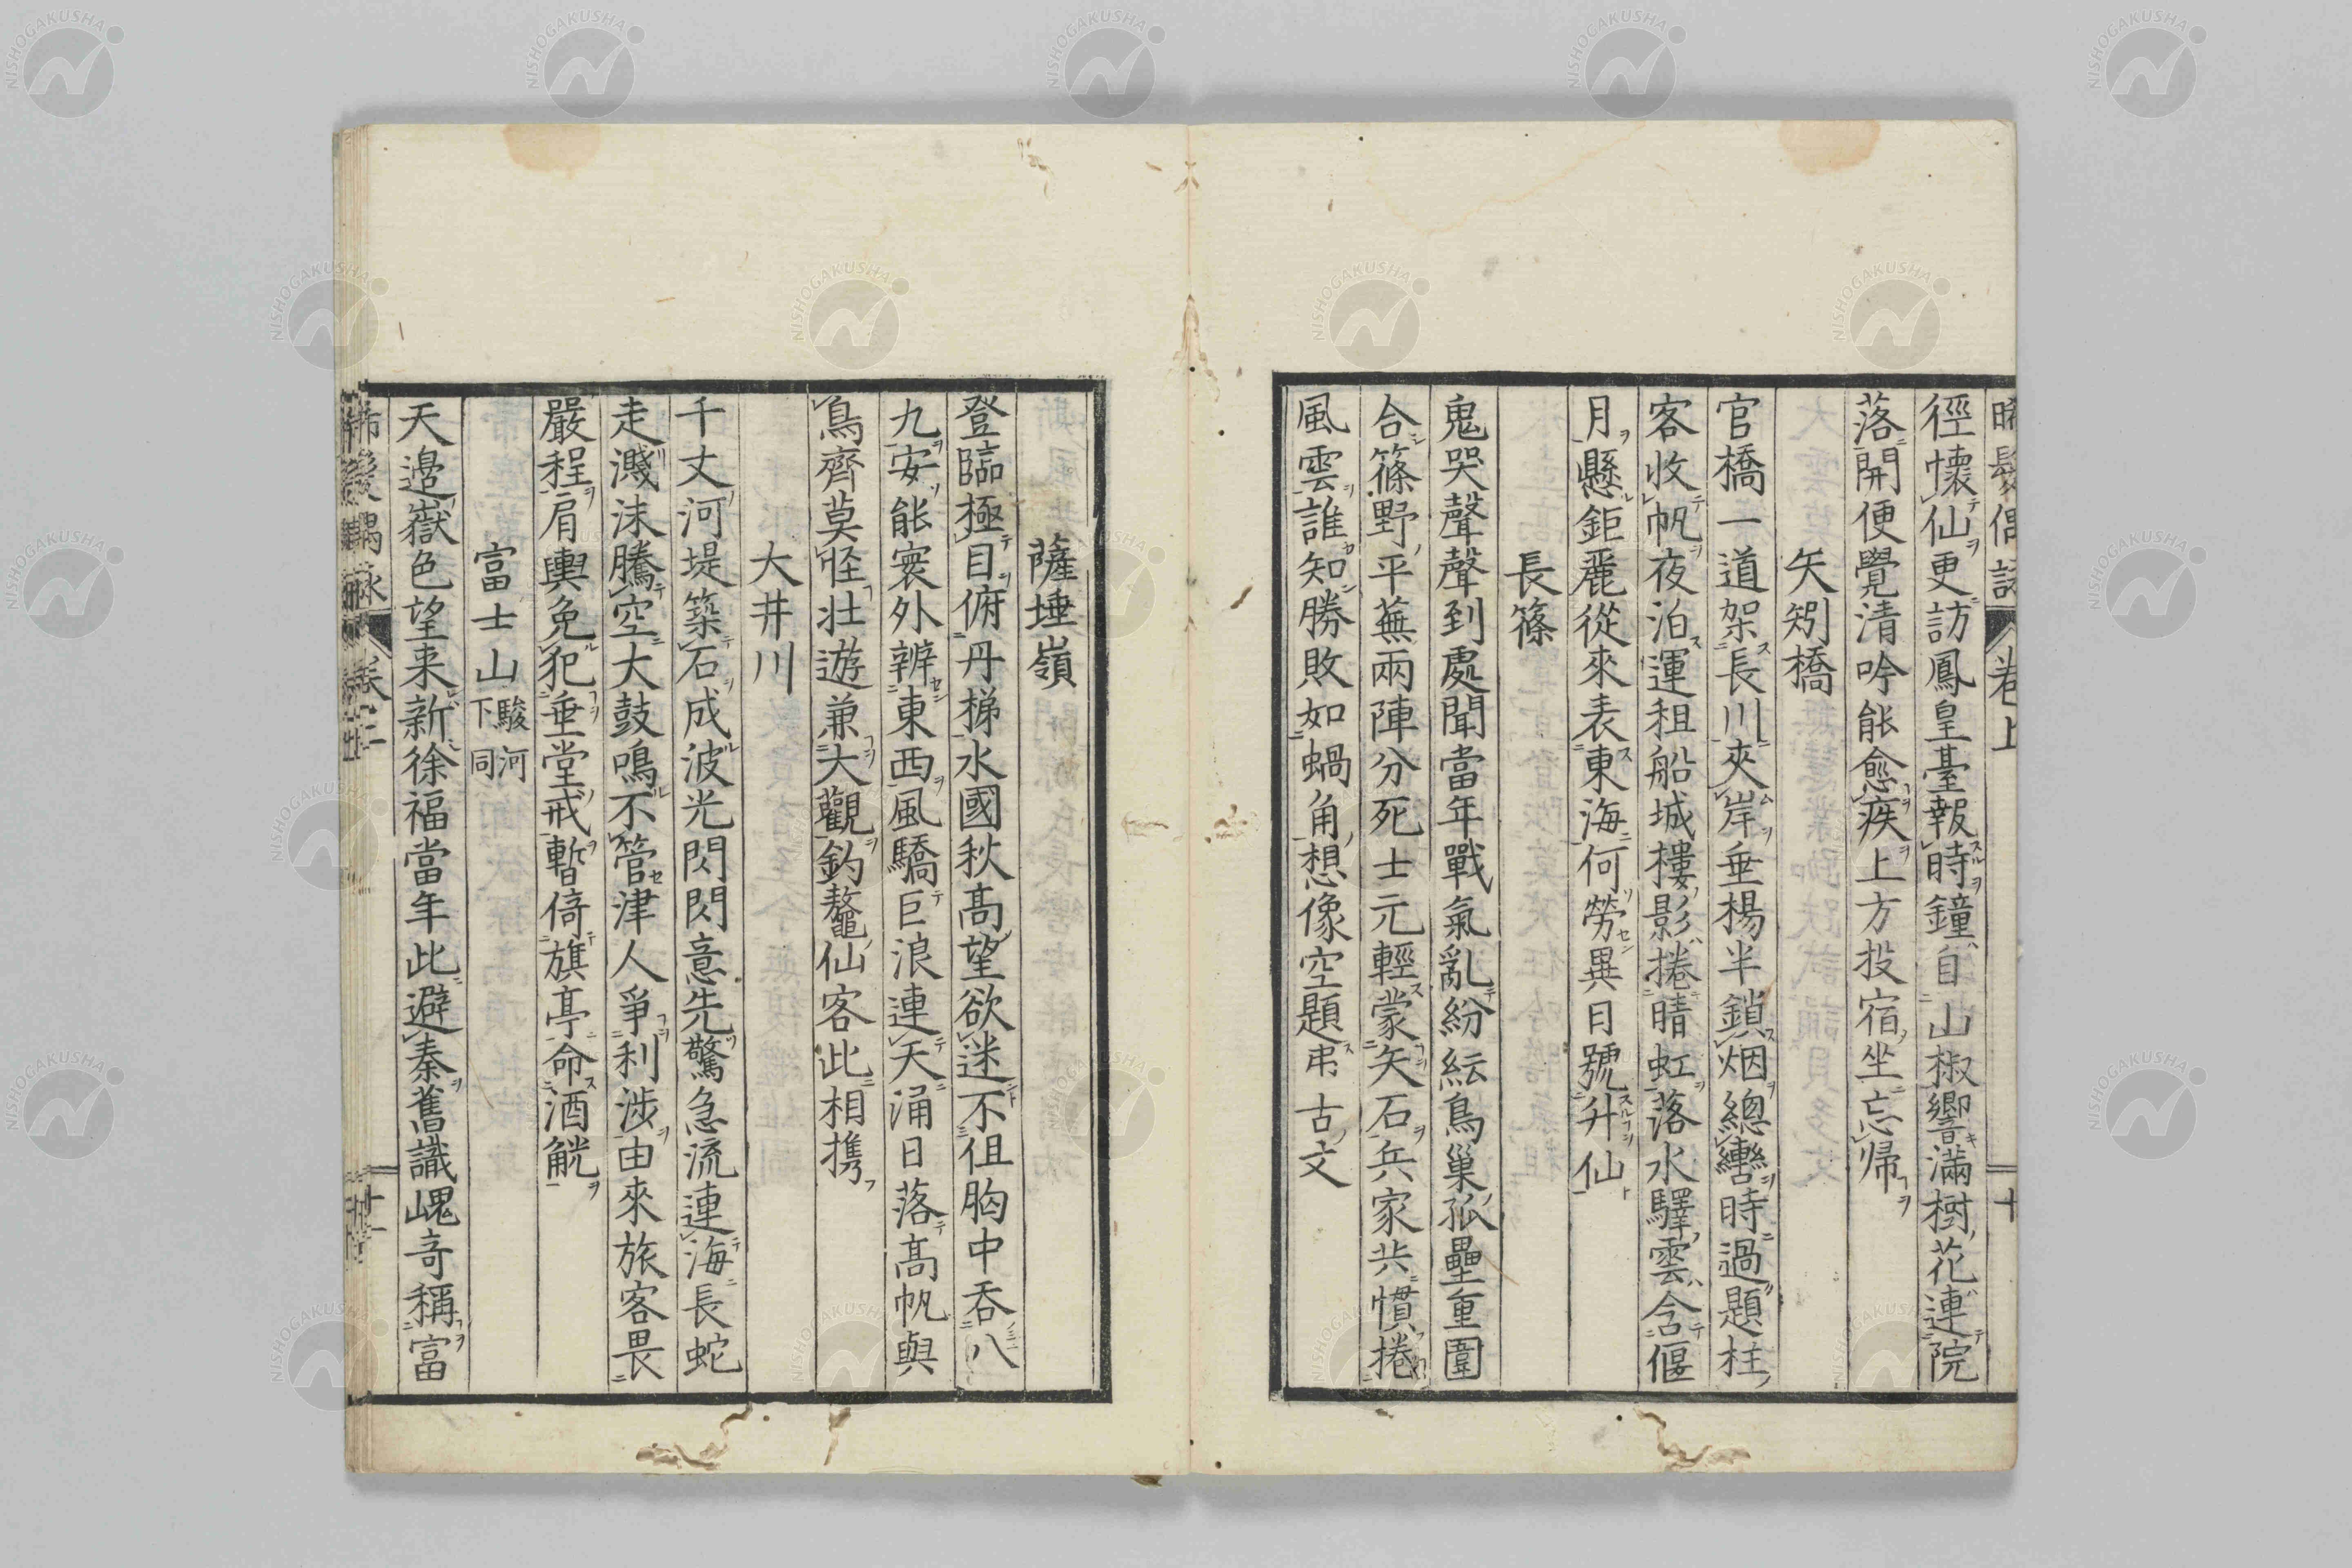 徑懷仙更訪鳳皇臺報時鐘自山椒響滿樹花連院
落開便覺清吟能愈疾上方投宿坐忘帰
矢矧橋
官橋一道架長川夾岸垂楊半鎖烟總轡時過題柱
客收帆夜泊運租船城樓影捲晴虹落水驛雲含偃
月懸鉅麗從來表東海何勞異日號升仙
長篠
鬼哭聲聲到處聞當年戰氣亂紛紜鳥巢孤壘重圍
合篠野平蕪兩陣分死士元輕蒙矢石兵家共慣捲
風雲誰知勝敗如蝸角想像空題弔古文
薩埵嶺
登臨極目俯丹梯水國秋高望欲迷不但胸中吞八
九安能寰外辨東西風驕巨浪連天涌日落高帆與
鳥齊莫怪壯遊兼大觀釣鼇仙客此相携
大井川
千丈河堤築石成波光閃閃意先驚急流連海長蛇
走濺沫騰空大鼓鳴不管津人爭利涉由來旅客畏
嚴程肩輿免犯垂堂戒暫倚旗亭命酒觥
富士山 駿河下同
天邉嶽色望来新徐福當年此避秦舊識崐竒稱富
卷上
十
NISHOGAKUSHA